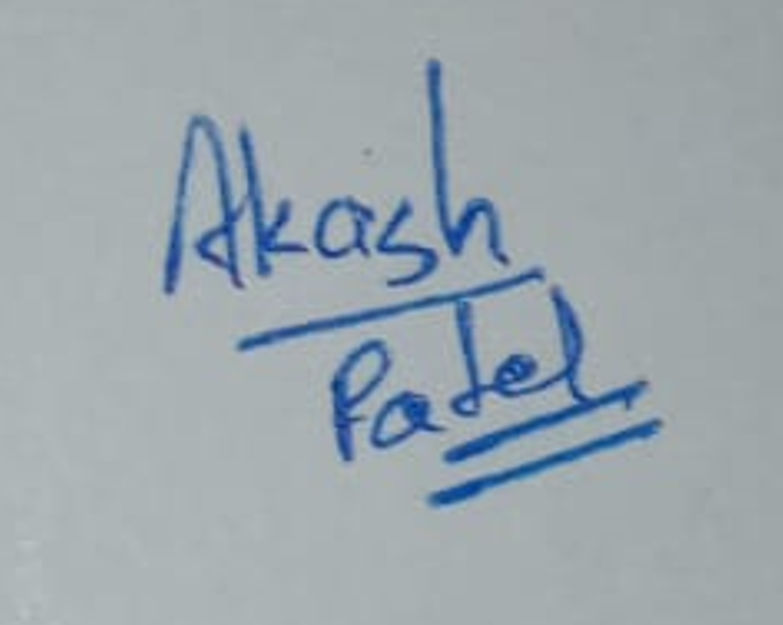 Akash
Patel